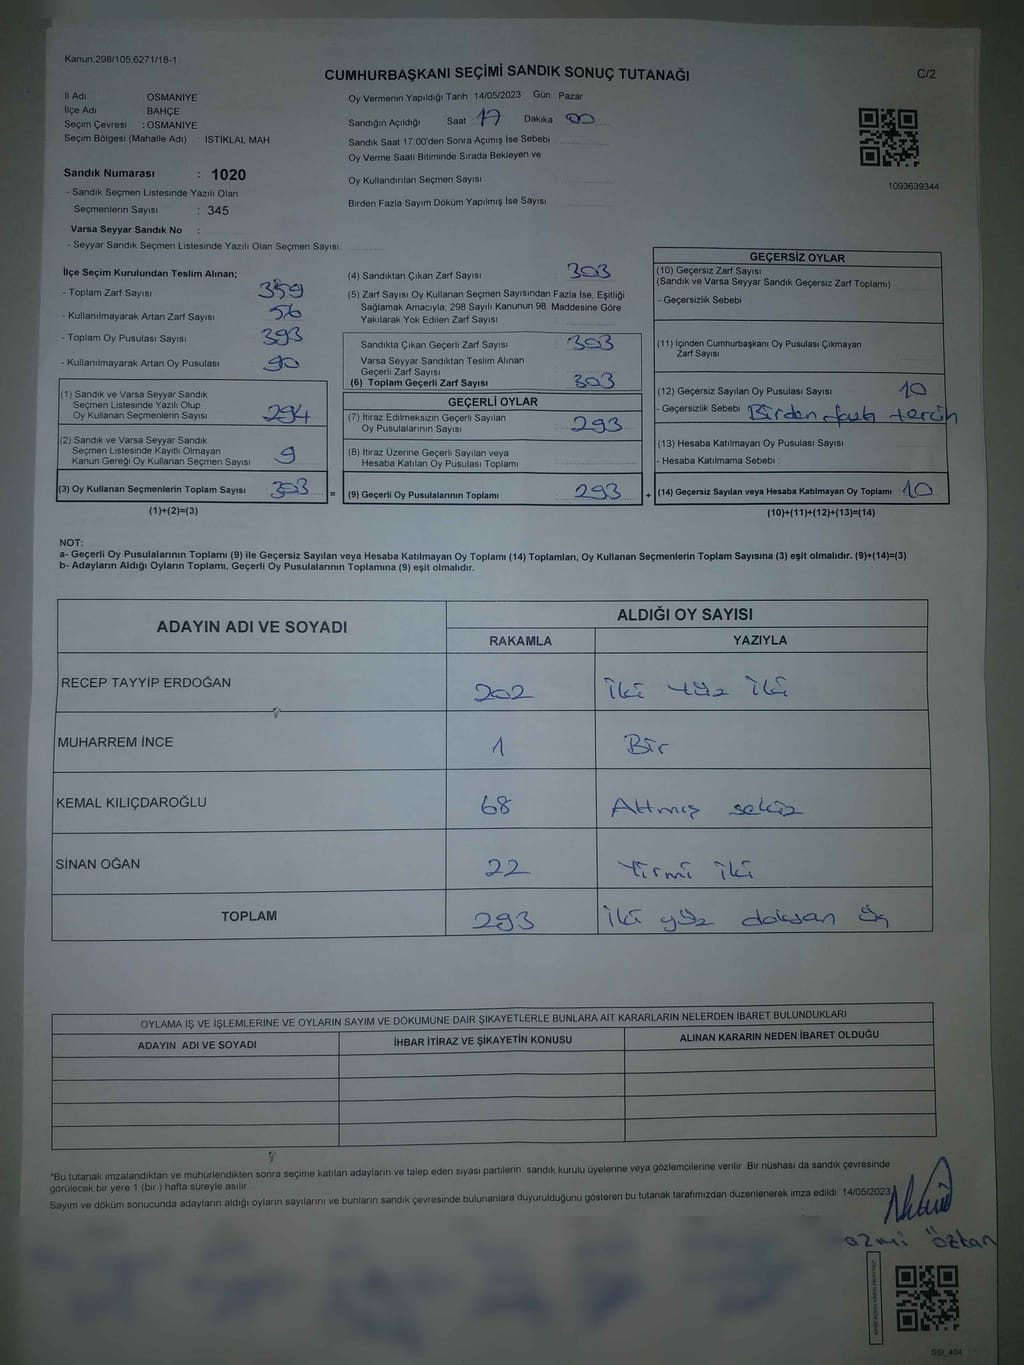 Kanun:298/105,6271/18-1
CUMHURBAŞKANI SEÇİMİ SANDIK SONUÇ TUTANAĞI
C/2
İl Adı OSMANİYE
İlçe Adı BAHÇE
Seçim Çevresi : OSMANİYE
Seçim Bölgesi (Mahalle Adı) İSTİKLAL MAH
Sandık Numarası : 1020
- Sandık Seçmen Listesinde Yazılı Olan
Seçmenlerin Sayısı : 345
Varsa Seyyar Sandık No :
- Seyyar Sandık Seçmen Listesinde Yazılı Olan Seçmen Sayısı
Oy Vermenin Yapıldığı Tarih : 14/05/2023 Gün : Pazar
Sandığın Açıldığı Saat : 17 Dakika : 00
Sandık Saat 17:00'den Sonra Açımış İse Sebebi
Oy Verme Saati Bitiminde Sırada Bekleyen ve
Oy Kullandırılan Seçmen Sayısı
Birden Fazla Sayım Döküm Yapılmış İse Sayısı
1093639344
İlçe Seçim Kurulundan Teslim Alınan;
- Toplam Zarf Sayısı 359
- Kullanılmayarak Artan Zarf Sayısı 56
- Toplam Oy Pusulası Sayısı 393
- Kullanılmayarak Artan Oy Pusulası 90
(1) Sandık ve Varsa Seyyar Sandık
Seçmen Listesinde Yazılı Olup
Oy Kullanan Seçmenlerin Sayısı 294
(2) Sandık ve Varsa Seyyar Sandık
Seçmen Listesinde Kayıtlı Olmayan
Kanun Gereği Oy Kullanan Seçmen Sayısı 9
(3) Oy Kullanan Seçmenlerin Toplam Sayısı 303 =
(1)+(2)=(3)
(4) Sandıktan Çıkan Zarf Sayısı 303
(5) Zarf Sayısı Oy Kullanan Seçmen Sayısından Fazla İse, Eşitliği
Sağlamak Amacıyla, 298 Sayılı Kanunun 98. Maddesine Göre
Yakılarak Yok Edilen Zarf Sayısı
Sandıkta Çıkan Geçerli Zarf Sayısı : 303
Varsa Seyyar Sandıktan Teslim Alınan
Geçerli Zarf Sayısı
(6) Toplam Geçerli Zarf Sayısı 303
GEÇERLİ OYLAR
(7) İtiraz Edilmeksizin Geçerli Sayılan
Oy Pusulalarının Sayısı : 293
(8) İtiraz Üzerine Geçerli Sayılan veya
Hesaba Katılan Oy Pusulası Toplamı
(9) Geçerli Oy Pusulalarının Toplamı : 293 +
GEÇERSİZ OYLAR
(10) Geçersiz Zarf Sayısı
(Sandık ve Varsa Seyyar Sandık Geçersiz Zarf Toplamı)
- Geçersizlik Sebebi
(11) İçinden Cumhurbaşkanı Oy Pusulası Çıkmayan
Zarf Sayısı
(12) Geçersiz Sayılan Oy Pusulası Sayısı 10
- Geçersizlik Sebebi Birden fazla tercih
(13) Hesaba Katılmayan Oy Pusulası Sayısı
- Hesaba Katılmama Sebebi :
(14) Geçersiz Sayılan veya Hesaba Katılmayan Oy Toplamı : 10
(10)+(11)+(12)+(13)=(14)
NOT:
a- Geçerli Oy Pusulalarının Toplamı (9) ile Geçersiz Sayılan veya Hesaba Katılmayan Oy Toplamı (14) Toplamları, Oy Kullanan Seçmenlerin Toplam Sayısına (3) eşit olmalıdır. (9)+(14)=(3)
b- Adayların Aldığı Oyların Toplamı, Geçerli Oy Pusulalarının Toplamına (9) eşit olmalıdır.
ADAYIN ADI VE SOYADI ALDIĞI OY SAYISI
RAKAMLA YAZIYLA
RECEP TAYYİP ERDOĞAN 202 İki Yüz İki
MUHARREM İNCE 1 Bir
KEMAL KILIÇDAROĞLU 68 Altmış sekiz
SİNAN OĞAN 22 Yirmi İki
TOPLAM 293 İki yüz doksan üç
OYLAMA İŞ VE İŞLEMLERİNE VE OYLARIN SAYIM VE DÖKÜMÜNE DAİR ŞİKAYETLERLE BUNLARA AİT KARARLARIN NELERDEN İBARET BULUNDUKLARI
ADAYIN ADI VE SOYADI İHBAR İTİRAZ VE ŞİKAYETİN KONUSU ALINAN KARARIN NEDEN İBARET OLDUĞU
*Bu tutanak imzalandıktan ve mühürlendikten sonra seçime katılan adayların ve talep eden siyasi partilerin sandık kurulu üyelerine veya gözlemcilerine verilir. Bir nüshası da sandık çevresinde
görülecek bir yere 1 (bir ) hafta süreyle asılır.
Sayım ve döküm sonucunda adayların aldığı oyların sayılarını ve bunların sandık çevresinde bulunanlara duyurulduğunu gösteren bu tutanak tarafımızdan düzenlenerek imza edildi. 14/05/2023
azmi Özkan
SSİ_404